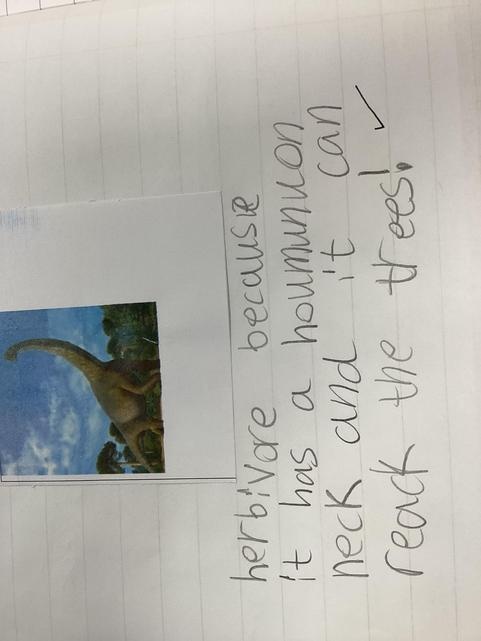 herbivore because
it has a houmunuon
neck and it can
reack the trees!